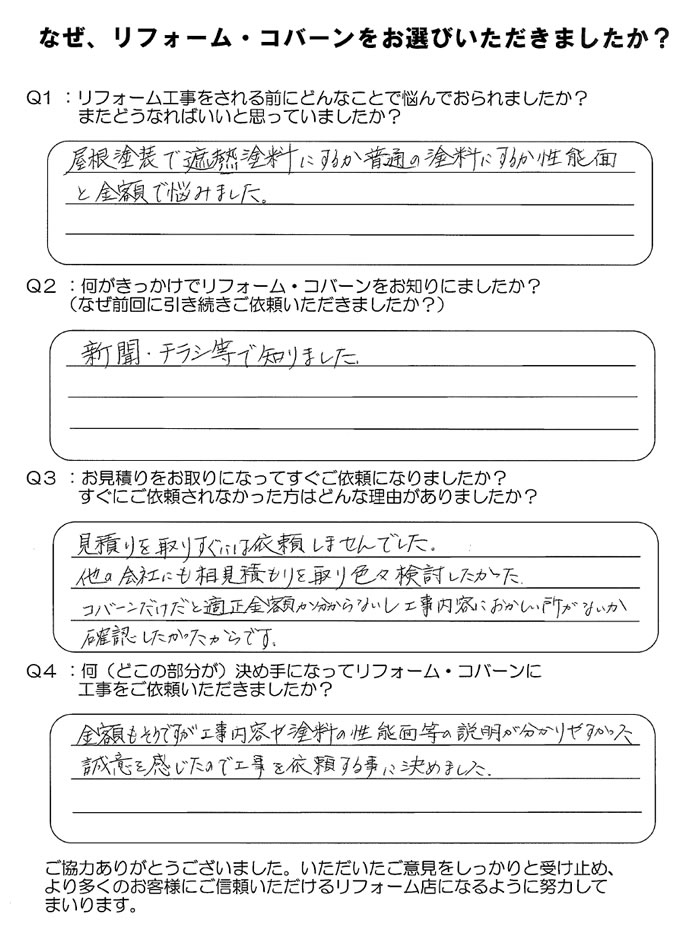 なぜ、リフォーム・コバーンをお選びいただきましたか？
Q1 ：リフォーム工事をされる前にどんなことで悩んでおられましたか？
またどうなればいいと思っていましたか？
屋根塗装で遮熱塗料にするか普通の塗料にするか性能面
と金額で悩みました。
Q2 ：何がきっかけでリフォーム・コバーンをお知りにましたか？
（なぜ前回に引き続きご依頼いただきましたか？）
新聞・チラシ等で知りました.
Q3 ：お見積りをお取りになってすぐご依頼になりましたか？
すぐにご依頼されなかった方はどんな理由がありましたか？
見積りを取りすぐには依頼しませんでした。
他の会社にも相見積もりを取り色々検討したかった.
コバーンだけだと適正金額か分からないし工事内容におかしい所がないか
確認したかったからです。
Q4 ：何（どこの部分が）決め手になってリフォーム・コバーンに
工事をご依頼いただきましたか？
金額もそうですが工事内容や塗料の性能面等の説明が分かりやすかった
誠意を感じたので工事を依頼する事に決めました.
ご協力ありがとうございました。いただいたご意見をしっかりと受け止め、
より多くのお客様にご信頼いただけるリフォーム店になるように努力して
まいります。